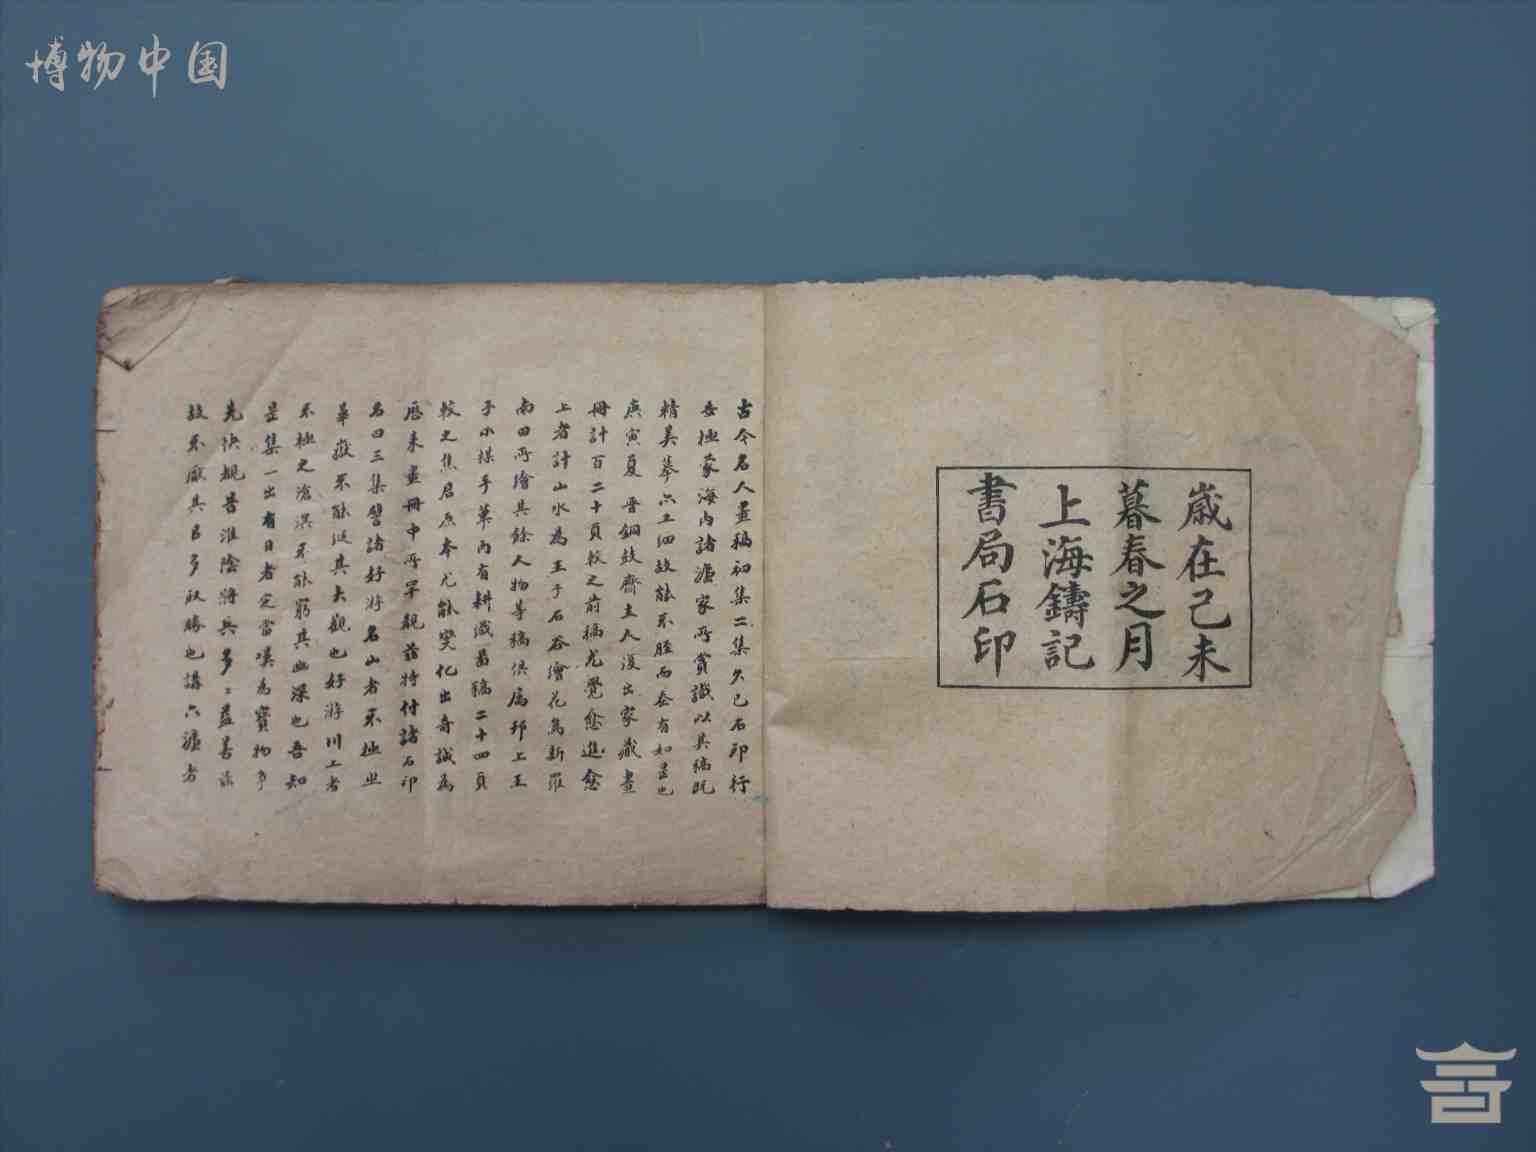 博物中国
歲在己未
暮春之月
上海鑄記
書局石印
古今名人畫稿初集二集久已石印行
世極蒙海內諸源家所賞識以其稿既
精美摹六工細故能不脛而走有如是也
庚寅夏晋銅鼓齋主人復出家藏畫
冊計百二十頁較之前稿尤覺愈進愈
上者計山水為王于石谷繪花鳥新羅
南田所繪其餘人物等稿俱屬邗上王
于小某手筆內有耕織圖稿二十四頁
較之焦君原本尤能變化出奇誠為
歷來畫冊中所罕覯茲特付諸石印
名曰三集譬諸好游名山者不極
華嶽不能延其大觀也好游川上者
不極之滄溟不能窮其幽深也吾知
是集一出有目者定當嘆為寶物爭
先快覩昔淮陰將兵多々益善
故不厭其多多以勝也講六源者